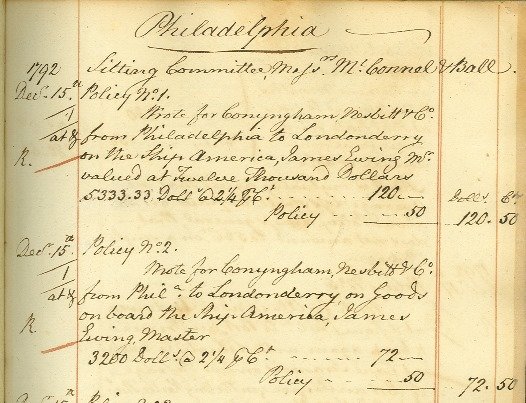 Philadelphia
1792 Sitting Committee Mess.rs McConnel & Ball
Dec.r 15.th Policy No. 1.
Wrote for Conyngham, Nesbitt & Co.
from Philadelphia to Londonderry
on the Ship America, James Ewing Mr.
R. valued at Twelve Thousand Dollars
5333.33 Doll.s @ 2¼ ⅌ Ct. 120.— Dolls. Cts
Policy 50 120.50
Dec.r 15.th Policy No. 2.
Wrote for Conyngham, Nesbitt & Co.
from Phil.a to Londonderry, on Goods
on board the Ship America, James
R. Ewing, Master
3200 Doll.s @ 2¼ ⅌ Ct 72—
Policy 50 72.50